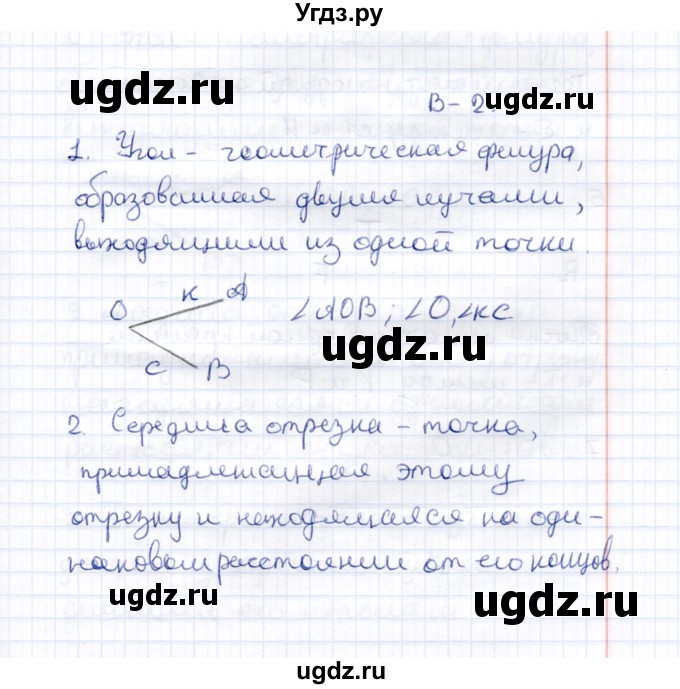 Угдз.ру
ugdz.ru ugdz.ru
В-2.
1. Угол - геометрическая фигура,
образованная двумя лучами,
выходящими из одной точки.
О К А ∠АОВ; ∠О, ∠КС
ugdz.ru
С В
2. Середина отрезка - точка,
принадлежащая этому
отрезку и находящаяся на оди-
наковом расстоянии от его концов.
ugdz.ru ugdz.ru
ugdz.ru